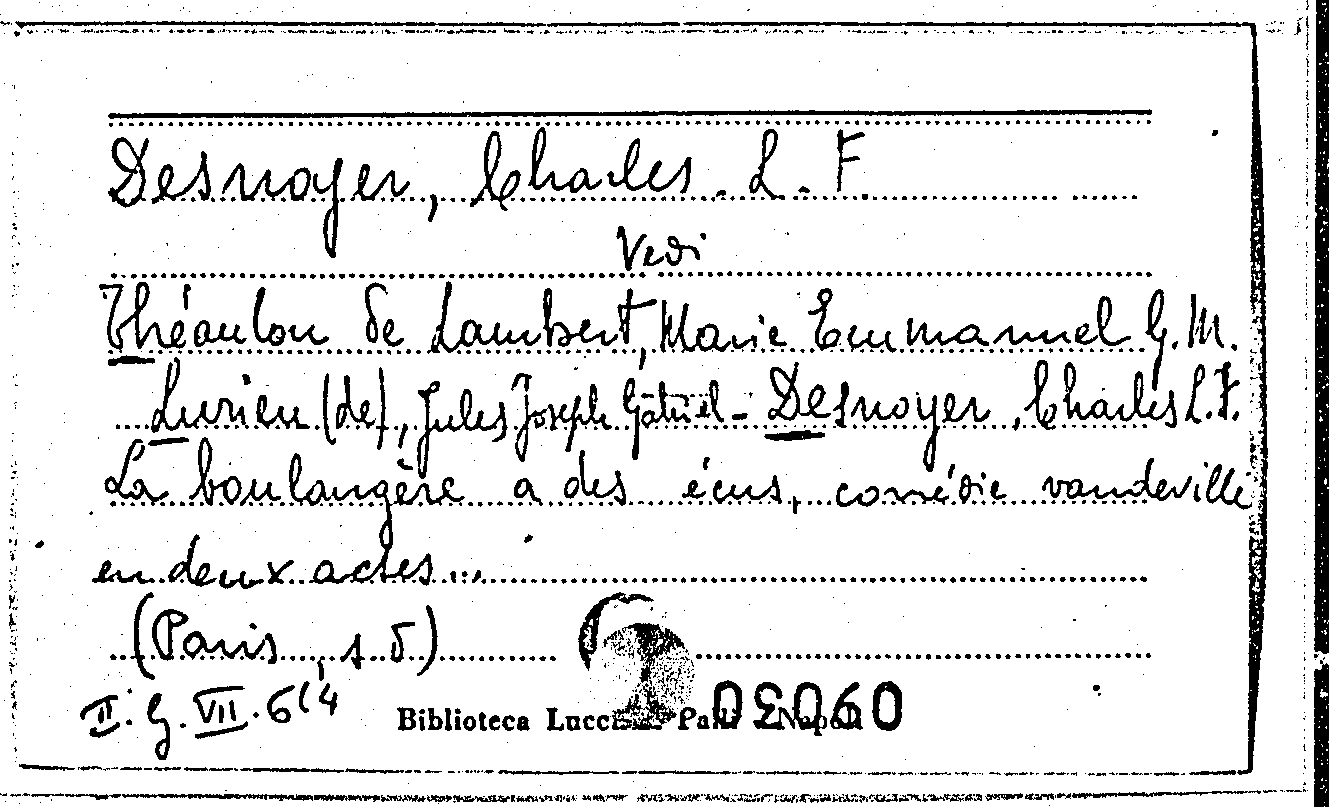 Desnoyer, Charles. L. F.
Vedi
Théaulon de Lambert, Marie Emmanuel G. M.
Lurieu (de), Jules Joseph Gabriel - Desnoyer, Charles L. F.
La boulangère a des écus, comédie vaudeville
en deux actes...
(Paris, s d)
II. G. VII. 6(4
Biblioteca Lucchesi Palli Napoli